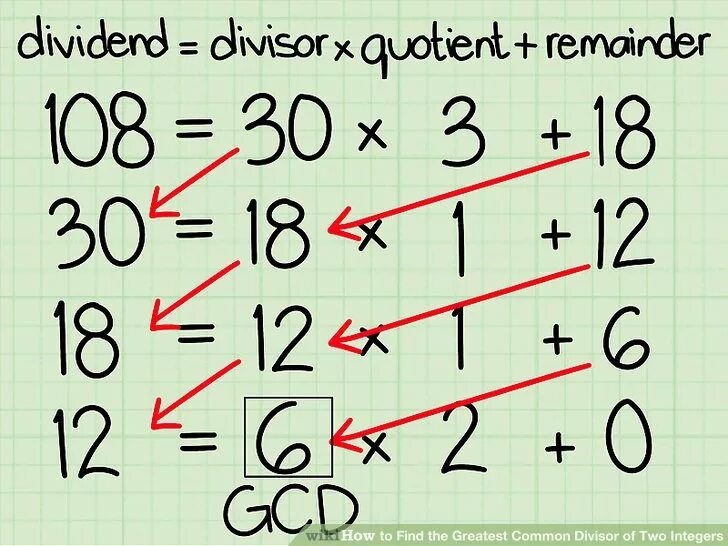 dividend = divisor x quotient + remainder
108 = 30 x 3 + 18
30 = 18 x 1 + 12
18 = 12 x 1 + 6
12 = 6 x 2 + 0
GCD
wikiHow to Find the Greatest Common Divisor of Two Integers